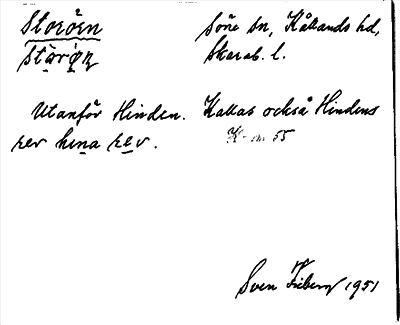 Storören
Söne sn, Kållands hd,
stårø̀ṇ
Skarab. l.
Utanför Hinden. Kallas också Hindens
rev hina rev.
K- 55
Sven Friberg 1951